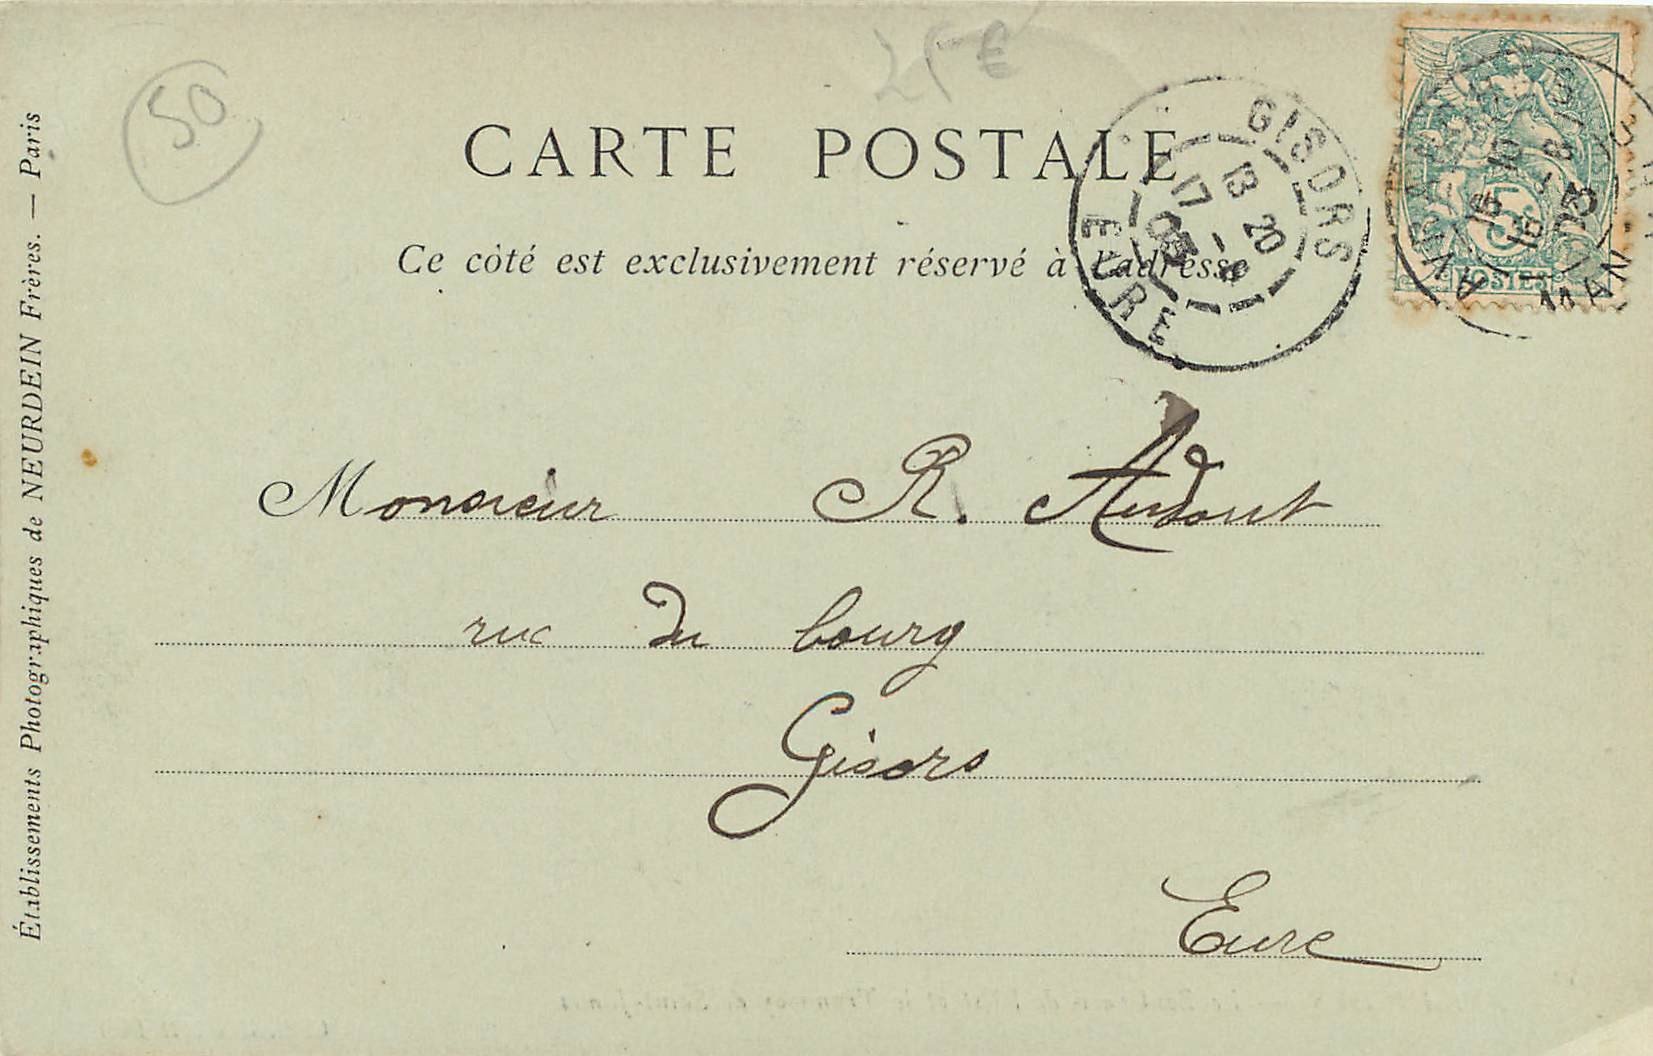 50
25 €
CARTE POSTALE
Ce côté est exclusivement réservé à l'adresse
GISORS
13 20
17 - 8
03
EURE
5
POSTES
16 - 8
03
Monsieur R. Audout
rue du bourg
Gisors
Eure
Établissements Photographiques de NEURDEIN Frères. — Paris